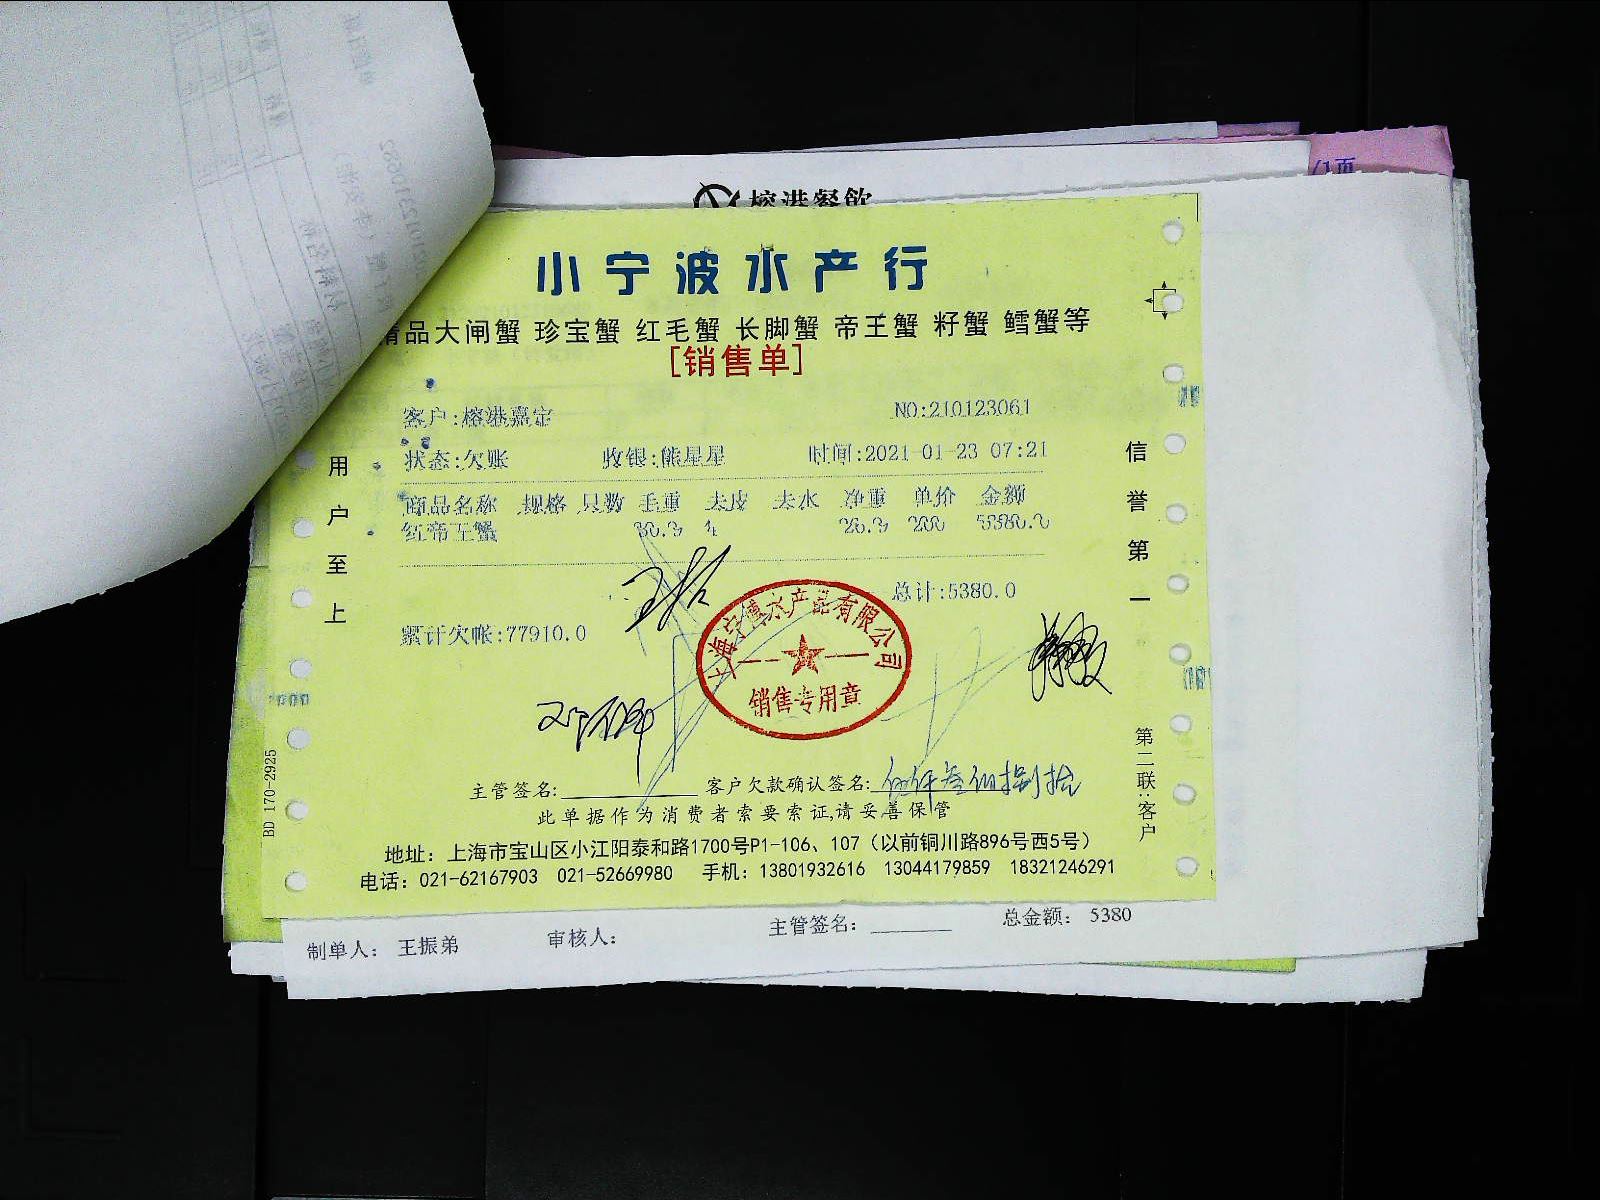 榕港餐飲
/1页
小宁波水产行
精品大闸蟹 珍宝蟹 红毛蟹 长脚蟹 帝王蟹 籽蟹 鳕蟹等
[销售单]
客户:榕港嘉定 NO:210123061
状态:欠账 收银:熊星星 时间:2021-01-23 07:21
商品名称 规格 只数 毛重 去皮 去水 净重 单价 金额
红帝王蟹 30.9 4 26.9 200 5380.0
总计:5380.0
累计欠帐:77910.0
用户至上
信誉第一
上海宁傅水产品有限公司
销售专用章
主管签名: 客户欠款确认签名: 伍仟叁佰捌拾
此单据作为消费者索要索证,请妥善保管
地址：上海市宝山区小江阳泰和路1700号P1-106、107（以前铜川路896号西5号）
电话：021-62167903 021-52669980 手机：13801932616 13044179859 18321246291
第二联:客户
BD 170-2925
制单人： 王振弟 审核人： 主管签名： 总金额： 5380